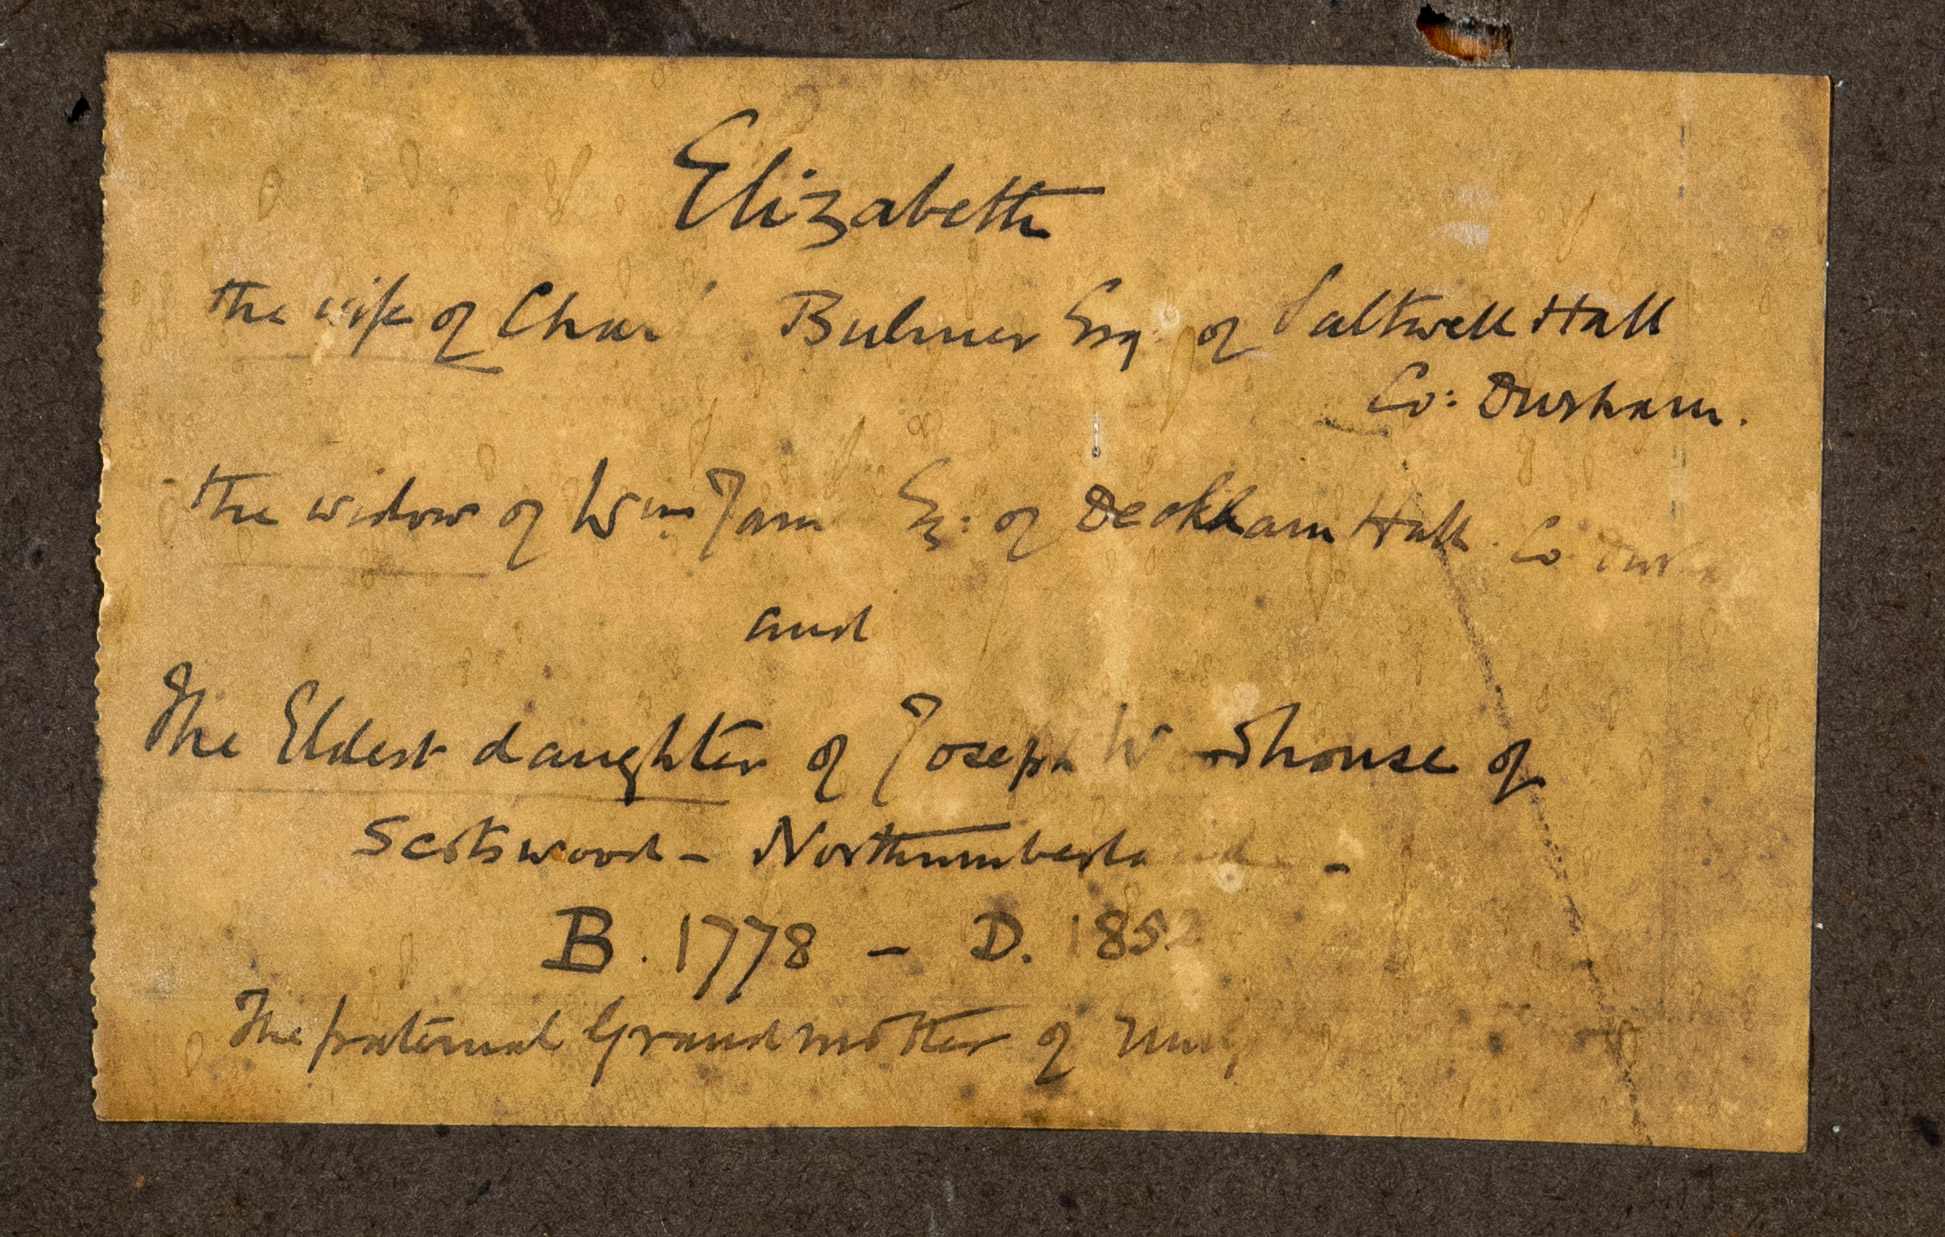 Elizabeth
the wife of Bulmer Esq. of Saltwell Hall
Co: Durham.
the widow of Wm. Esq: of Deckham Hall. Co.
and
The Eldest daughter of Joseph of
Scotswood - Northumberland -
B. 1778 - D. 1852
The paternal Grandmother of